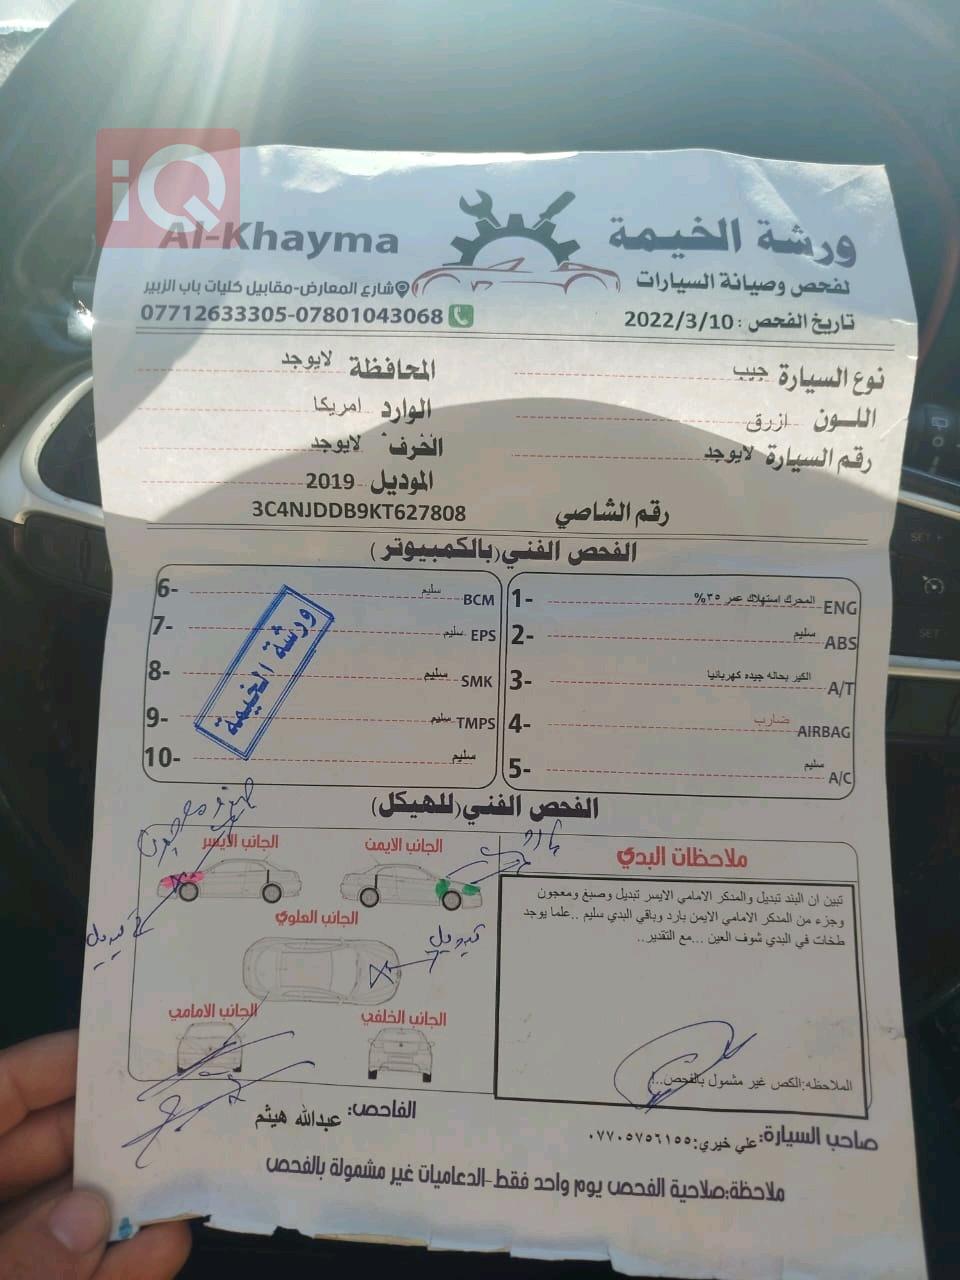 iQ
Al-Khayma
ورشة الخيمة
لفحص وصيانة السيارات
شارع المعارض-مقابيل كليات باب الزبير
07712633305-07801043068
تاريخ الفحص : 2022/3/10
نوع السيارة جيب
المحافظة لايوجد
اللـــون ازرق
الوارد امريكا
رقم السيارة لايوجد
الخرف لايوجد
الموديل 2019
رقم الشاصي 3C4NJDDB9KT627808
الفحص الفني(بالكمبيوتر)
1- المحرك استهلاك عمر ٣٥% ENG
2- سليم ABS
3- الكير بحاله جيده كهربائيا A/T
4- ضارب AIRBAG
5- سليم A/C
6- سليم BCM
7- سليم EPS
8- سليم SMK
9- سليم TMPS
10- سليم
ورشة الخيمة
الفحص الفني(للهيكل)
ملاحظات البدي
تبين ان البند تبديل والمدكر الامامي الايسر تبديل وصبغ ومعجون
وجزء من المدكر الامامي الايمن بارد وباقي البدي سليم ..علما يوجد
طخات في البدي شوف العين ...مع التقدير..
الملاحظه:الكص غير مشمول بالفحص..!
الجانب الايمن
الجانب الايسر
بارد
تبديل
الجانب العلوي
تبديل
الجانب الخلفي
الجانب الامامي
صاحب السيارة: علي خيري:٠٧٧٠٥٧٥٦١٥٥
الفاحص: عبدالله هيثم
ملاحظة:صلاحية الفحص يوم واحد فقط-الدعاميات غير مشمولة بالفحص
SET +
SET